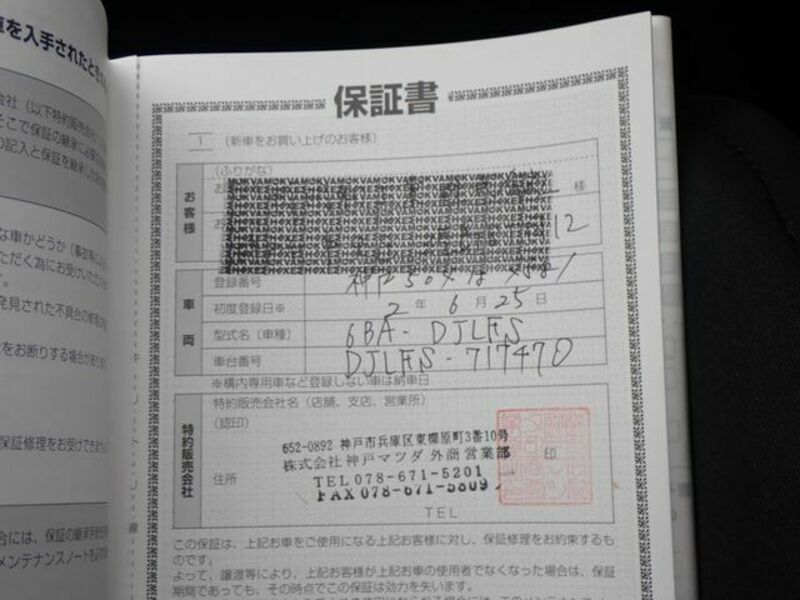 車を入手されたとき
会社（以下特約販売会社
そこで保証の継承に必要
の記入と保証を継承した
な車かどうか（事故等に
ただく為にお受けいただ
す。
発見された不具合の修理
をお断りする場合があり
保証修理をお受けできま
合には、保証の継承手続
メンテナンスノートを
保証書
1 （新車をお買い上げのお客様）
お客様
（ふりがな）
様
12
車両
登録番号 神戸
初度登録日※ 2 年 6 月 25 日
型式名（車種） 6BA-DJLFS
車台番号 DJLFS-717470
※構内専用車など登録しない車は納車日
特約販売会社
特約販売会社名（店舗、支店、営業所）
（認印）
652-0892 神戸市兵庫区東柳原町3番10号
株式会社神戸マツダ 外商営業部 印
住所 TEL 078-671-5201
FAX 078-671-5809
TEL
この保証は、上記お車をご使用になる上記お客様に対し、保証修理をお約束するも
のです。
よって、譲渡等により、上記お客様が上記お車の使用者でなくなった場合は、保証
期間であっても、その時点でこの保証は効力を失います。